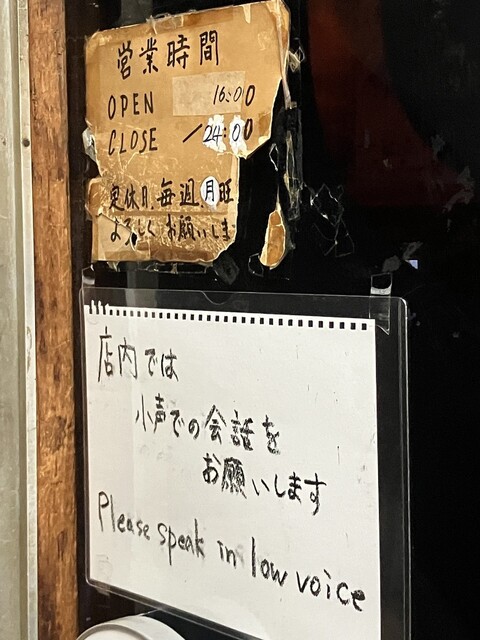 営業時間
OPEN 16:00
CLOSE /24:00
定休日.毎週.月旺
よろしくお願いしま
店内では
小声での会話を
お願いします
Please speak in low voice